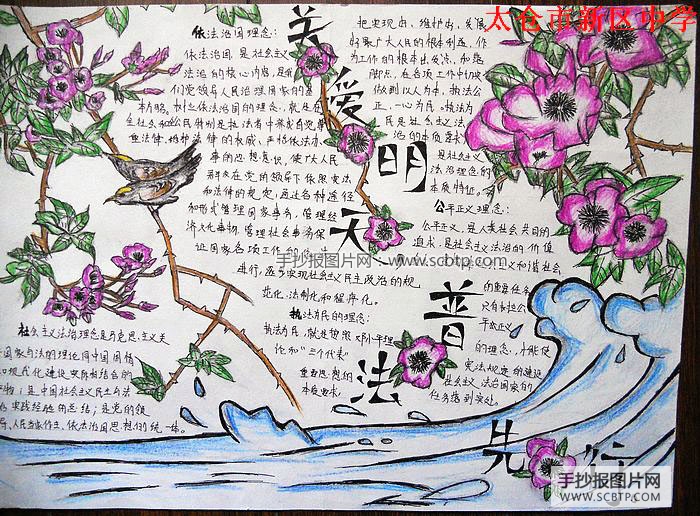 太仓市新区中学
关爱明天
普法先行
依法治国理念：
依法治国，是社会主义
法治的核心内容，是我
们党领导人民治理国家的基
本方略。树立依法治国的理念，就是在
全社会和公民
法律，维护法律的权威，严格依法办
事的思想意识，使广大人民
群众在党的领导下依照宪法
和法律的规定，通过各种途径
和形式管理国家事务，管理经
济文化事物，管理社会事务保
证国家各项工作
进行，逐步实现社会主义民主政治的规
范化、法制化和程序化。
执法为民的理念：
执法为民，就是按照邓小平理
论和“三个代表”
重要思想的
本质要求，
把实现好、维护好、发展
好最广大人民的根本利益，作
为工作的根本出发点和落
脚点，在各项工作中切实
做到以人为本，执法公
正，一心为民。执法为
民是社会主义法
治的本质要求
是社会主义
法治理念的
本质特征。
公平正义理念：
公平正义，是人类社会共同的
追求，是社会主义法治的价值
主义和谐社会
的重要任务
只有树立
公平正义
的理念，才能使
宪法规定的建设
社会主义法治国家的
任务落到实处。
社会主义法治理念是马克思主义关
国家与法的理论同中国国情
和现代化建设实际相结合的
产物；是中国社会主义民主与法
治实践经验的总结；是党的领
导、人民当家作主、依法治国思想的统一体。
手抄报图片网 - www.scbtp.com
手抄报图片网
WWW.SCBTP.COM